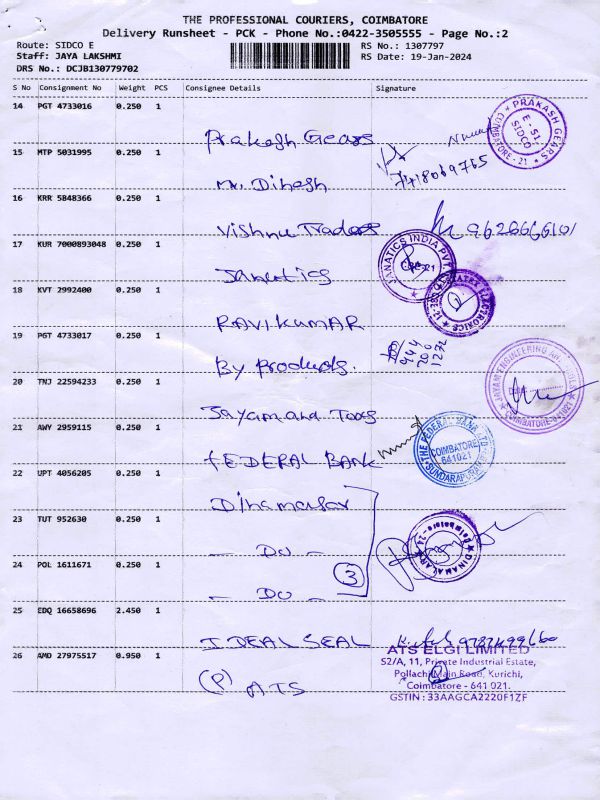 THE PROFESSIONAL COURIERS, COIMBATORE
Delivery Runsheet - PCK - Phone No.:0422-3505555 - Page No.:2
Route: SIDCO E
RS No.: 1307797
Staff: JAYA LAKSHMI
RS Date: 19-Jan-2024
DRS No.: DCJB130779702
S No Consignment No Weight PCS Consignee Details Signature
14 PGT 4733016 0.250 1
Prakash Gears
PRAKASH GEARS E-51 SIDCO COIMBATORE - 21
15 MTP 5031995 0.250 1
Mr. Dinesh
16 KRR 5848366 0.250 1
Vishnu Traders
9626666101
17 KUR 7000893048 0.250 1
Janatics
JANATICS INDIA PVT
18 KVT 2992400 0.250 1
RAVIKUMAR
ELECTRONICS
19 PGT 4733017 0.250 1
By Products.
944
200
1272
20 TNJ 22594233 0.250 1
Jayam and Tools
JAYAM ENGINEERING AND TOOLS
21 AWY 2959115 0.250 1
FEDERAL BANK
THE FEDERAL BANK LTD COIMBATORE 641021
22 UPT 4056205 0.250 1
Dinamalar
23 TUT 952630 0.250 1
- Do -
DINAMALAR
24 POL 1611671 0.250 1
- Do -
3
25 EDQ 16658696 2.450 1
IDEAL SEAL
26 AMD 27975517 0.950 1
(P) ATS
ATS ELGI LIMITED
S2/A, 11, Private Industrial Estate,
Pollachi Main Road, Kurichi,
Coimbatore - 641 021.
GSTIN : 33AAGCA2220F1ZF